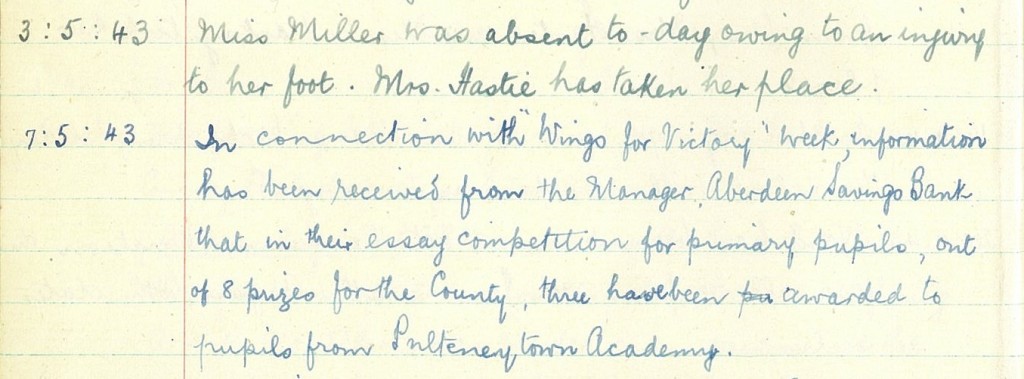 3 : 5 : 43 Miss Miller was absent to-day owing to an injury
to her foot. Mrs. Hastie has taken her place.
7 : 5 : 43 In connection with "Wings for Victory" Week, information
has been received from the Manager, Aberdeen Savings Bank
that in their essay competition for primary pupils, out
of 8 prizes for the County, three have been awarded to
pupils from Pulteneytown Academy.